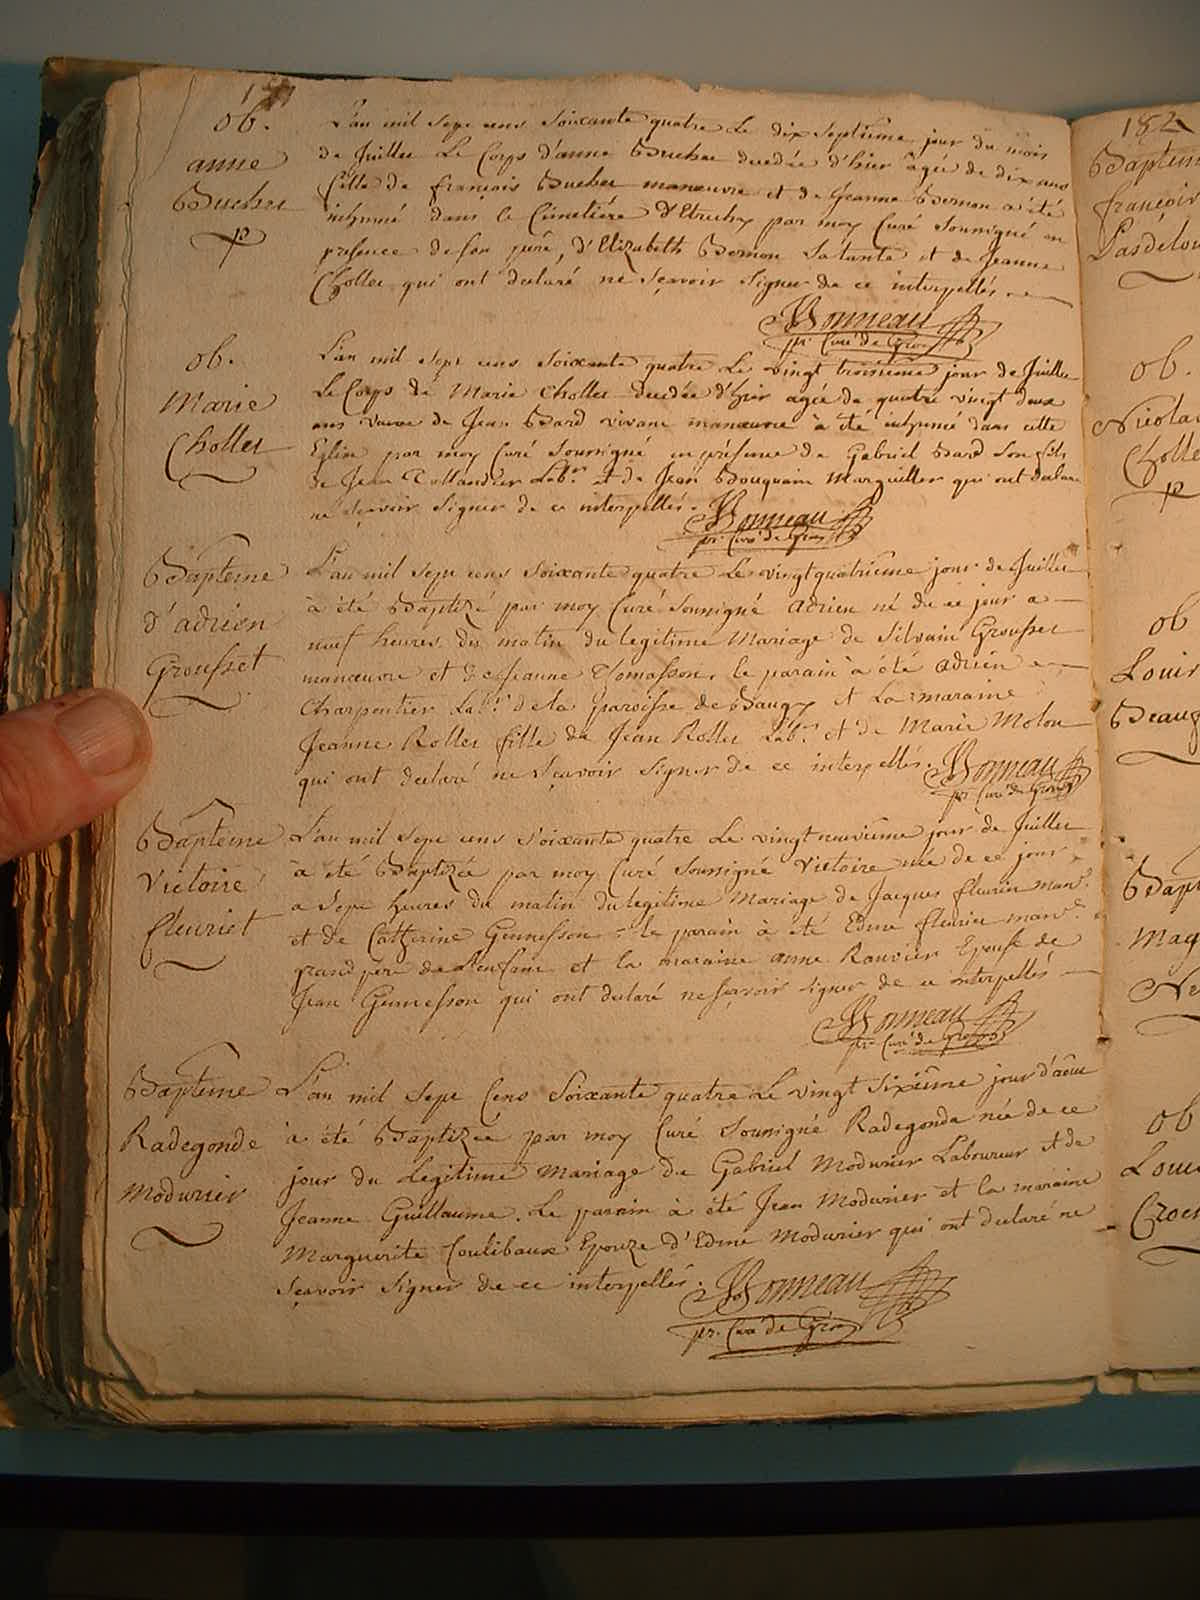 ob.
anne
Bucher
p
L'an mil sept cens soixante quatre Le dix septieme jour du mois
de Juillet Le Corps d'anne Bucher decedée d'hier âgée de dix ans
fille de francois Bucher manœuvre et de Jeanne Bernon a été
inhumé dans le Cimetiére d'Etrechy par moy Curé soussigné en
presence de son pere, d'Elizabeth Bernon sa tante et de Jeanne
Chollet qui ont declaré ne sçavoir signer de ce interpellés.
Bonneau
pr. Curé de Gron
ob.
Marie
Chollet
L'an mil sept cens soixante quatre Le vingt troisieme jour de Juillet
Le Corps de Marie Chollet decedée d'hier agée de quatre vingt deux
ans veuve de Jean Bard vivant manœuvre à été inhumé dans cette
Eglise par moy Curé soussigné en présence de Gabriel Bard son fils
de Jean Tallandier Labr. et de Jean Bouquain Marguillier qui ont declaré
ne sçavoir signer de ce interpellés.
Bonneau
pr. Curé de Gron
Bapteme
d'adrien
Grousset
L'an mil sept cens soixante quatre Le vingt quatrieme jour de Juillet
à été Baptizé par moy Curé soussigné adrien né de ce jour a
neuf heures du matin du legitime Mariage de Silvain Grousset
manœuvre et de Jeanne Thomasson, le parain à été adrien
Charpentier Labr. de la paroisse de Baugy et La maraine
Jeanne Rollet fille de Jean Rollet Labr. et de Marie Molou
qui ont declaré ne sçavoir signer de ce interpellés.
Bonneau
pr. Curé de Gron
Bapteme
Victoire
fleuriet
L'an mil sept cens soixante quatre Le vingt neuvieme jour de Juillet
à été Baptizée par moy Curé soussigné Victoire née de ce jour
a sept heures du matin du legitime Mariage de Jacques fleuriet manv.
et de Catherine Gennesson. le parain à été Edme fleuriet manv.
grand pere de l'enfant et la maraine anne Rouvier Epouse de
Jean Gennesson qui ont declaré ne sçavoir signer de ce interpellés
Bonneau
pr. Curé de Gron
Bapteme
Radegonde
Modurier
L'an mil sept Cens Soixante quatre Le vingt sixiême jour d'aout
à été Baptizée par moy Curé soussigné Radegonde née de ce
jour du Legitime Mariage de Gabriel Modurier Laboureur et de
Jeanne Guillaume. Le parain à été Jean Modurier et la maraine
Marguerite Coulibaux Epouze d'Edme Modurier qui ont declaré ne
sçavoir signer de ce interpellés.
Bonneau
pr. Curé de Gron
182
Baptem
françoir
Pasdelou
ob.
Nicola
Cholle
p
ob
Louis
Beaug
Bapt
Mag
ob
Loui
Croc